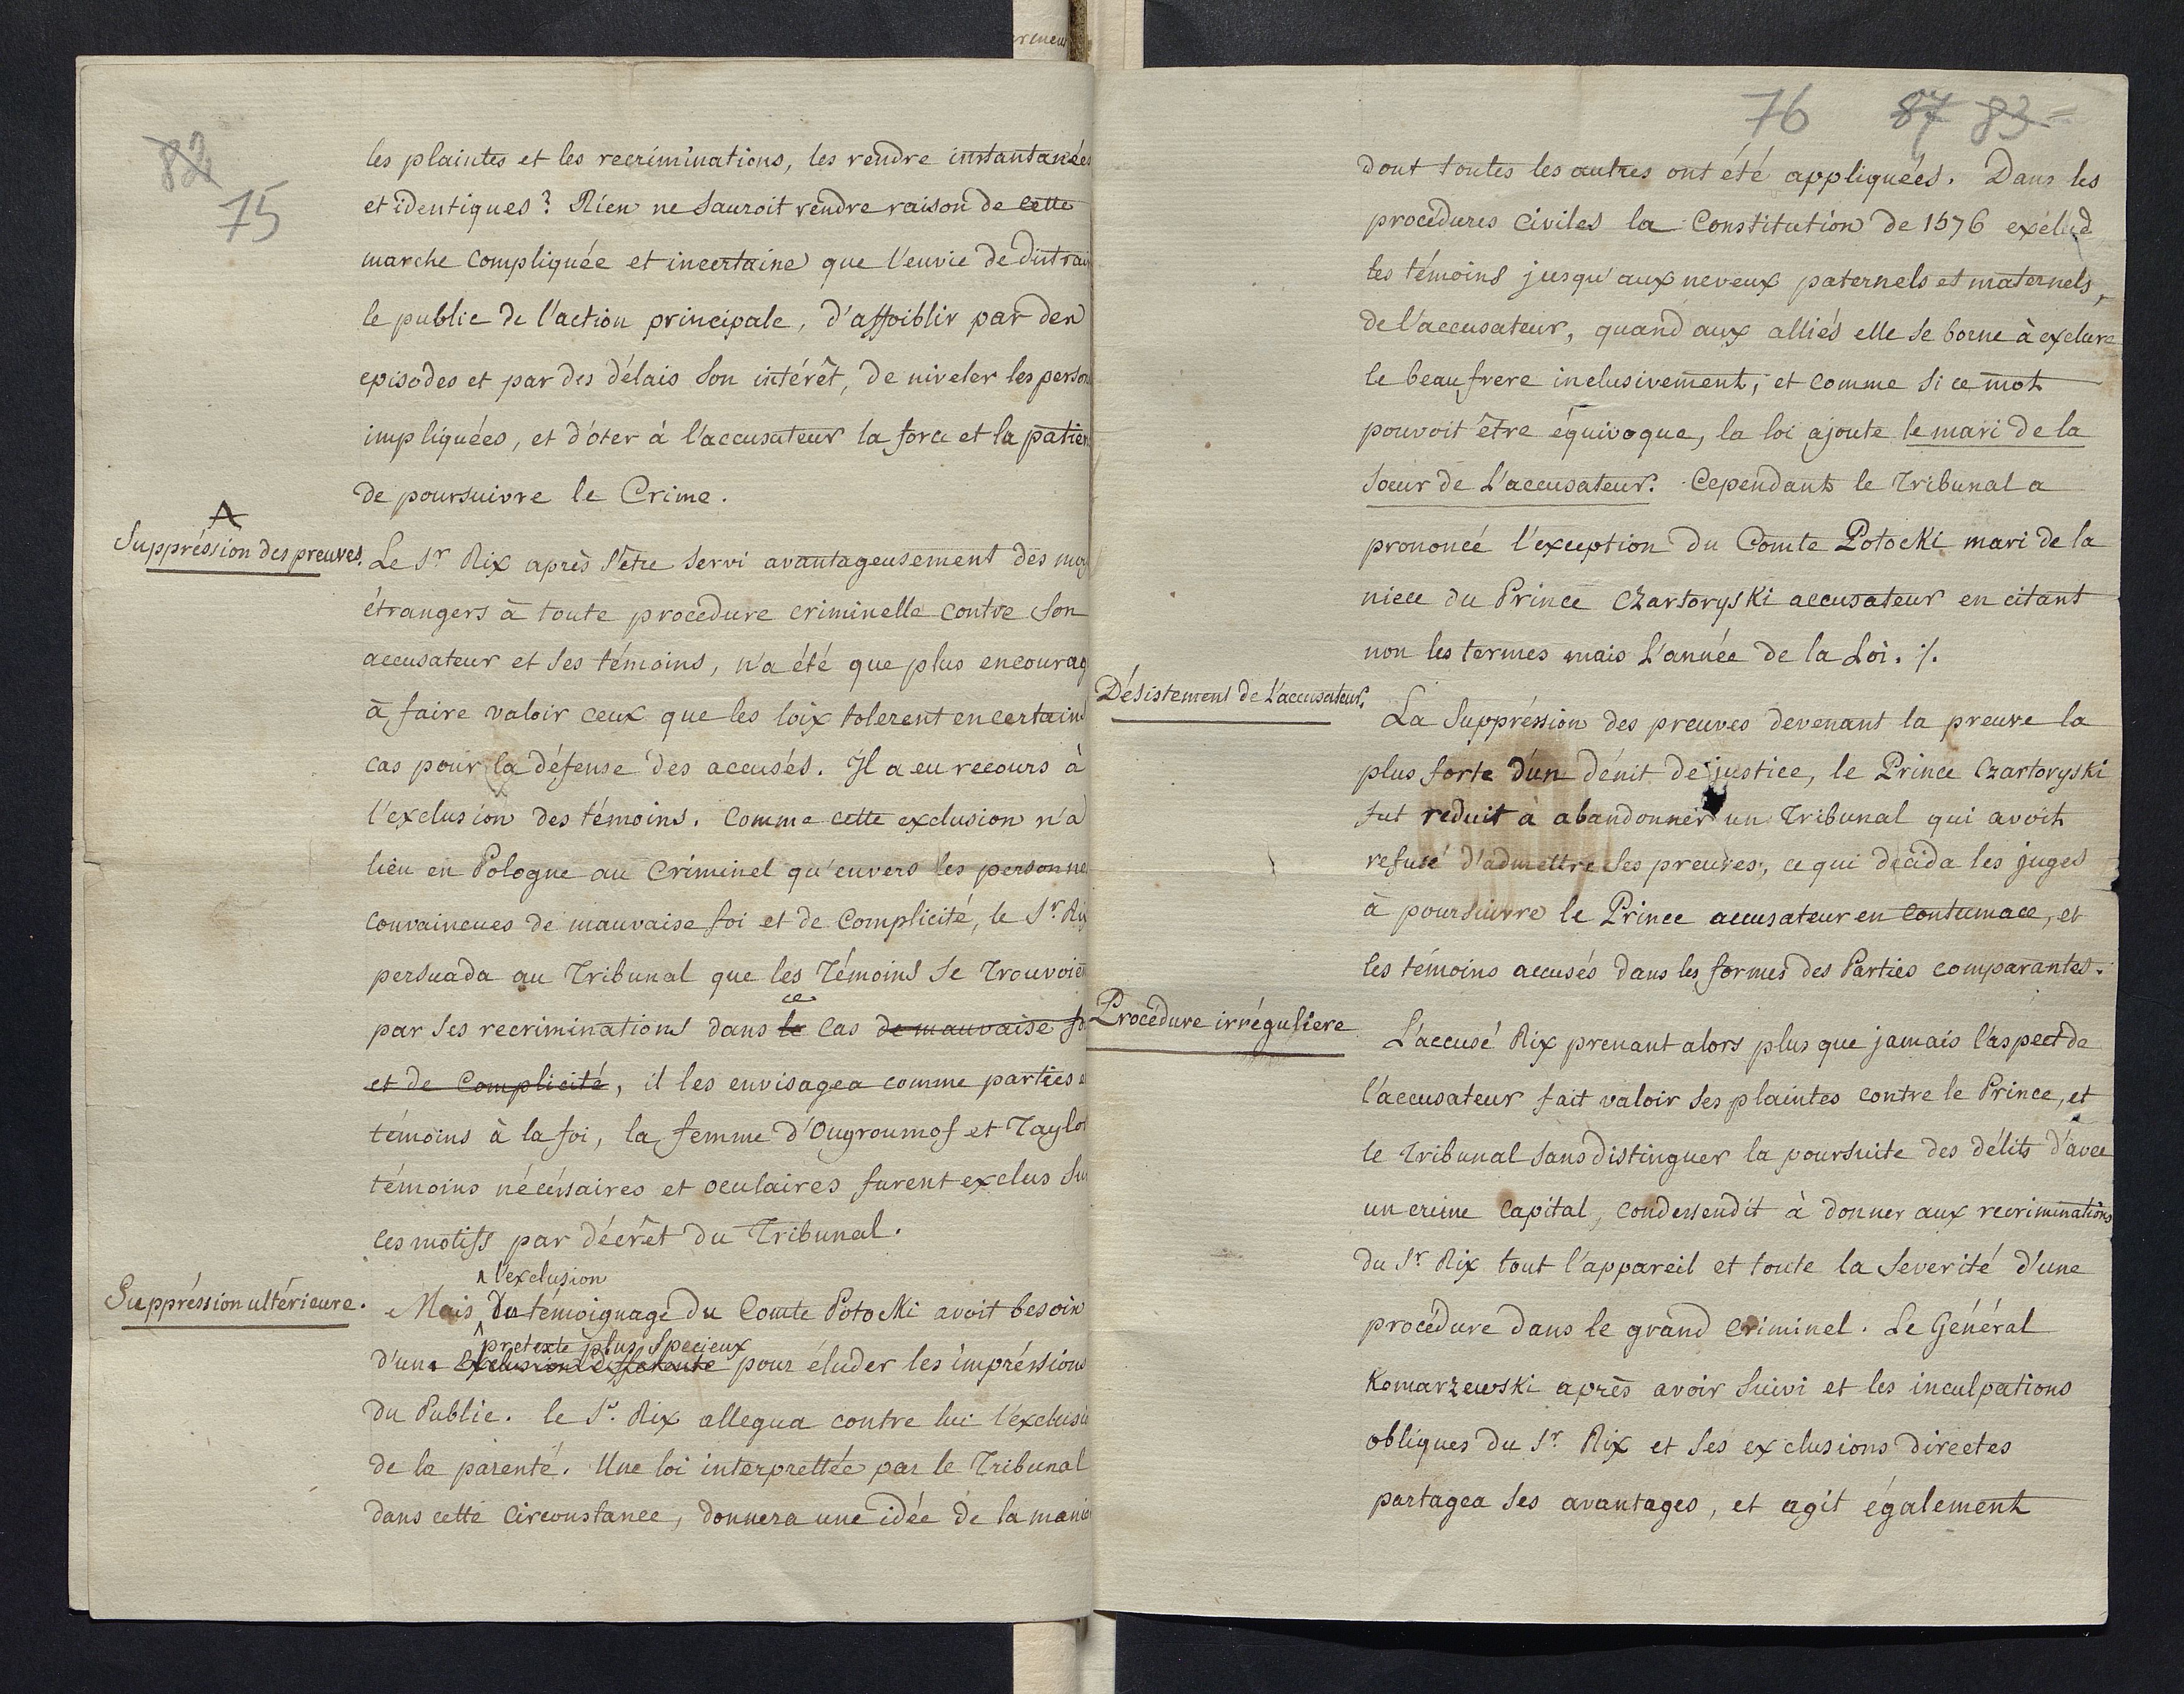 82
75
les plaintes et les recriminations, les rendre instantanées
et identiques? Rien ne sauroit rendre raison de cette
marche compliquée et incertaine que l'envie de distrai
le public de l'action principale, d'affoiblir par des
episodes et par des délais son intérêt, de niveler les person
impliquées, et d'oter à l'accusateur la force et la patien
de poursuivre le Crime.
Suppréssion des preuves.
Le Sr Rix après s'etre servi avantageusement des moy
étrangers à toute procedure criminelle contre son
accusateur et ses témoins, n'a été que plus encourag
à faire valoir ceux que les loix tolerent en certains
cas pour la défense des accusés. Il a eu recours à
l'exclusion des témoins. Comme cette exclusion n'a
lieu en Pologne au Criminel qu'envers les personne
convaincues de mauvaise foi et de Complicité, le Sr. Rix
persuada au Tribunal que les Témoins se trouvoien
ce
par ses recriminations dans le cas de mauvaise fo
et de Complicité, il les envisagea comme parties et
témoins à la foi, la femme d'Ougroumof et Taylor
témoins nécéssaires et oculaires furent exclus sur
ces motifs par décrêt du Tribunal.
l'exclusion
Suppréssion ultérieure.
Mais du témoignage du Comte Potocki avoit besoin
pretexte plus specieux
d'une exclusion differente pour éluder les impréssions
du Public. le Sr. Rix allegua contre lui l'exclusio
de la parenté. Une loi interprettée par le Tribunal
dans cette Circonstance, donnera une idée de la maniè
76 87 83
dont toutes les autres ont été appliquées. Dans les
procédures Civiles la Constitution de 1576 exclud
les témoins jusqu'aux neveux paternels et maternels,
de l'accusateur, quand aux alliés elle se borne à exclure
le beaufrere inclusivement, et comme si ce mot
pouvoit être équivoque, la loi ajoute le mari de la
soeur de L'accusateur. Cependant le Tribunal a
prononcé l'exception du Comte Potocki mari de la
niece du Prince Czartoryski accusateur en citant
non les termes mais L'année de la Loi. ./.
Désistement de L'accusateur.
La Suppréssion des preuves devenant la preuve la
plus forte d'un denit de justice, le Prince Czartoryski
fut reduit à abandonner un Tribunal qui avoit
refusé d'admettre ses preuves, ce qui decida les juges
à poursuivre le Prince accusateur en Contumace, et
les témoins accusés dans les formes des Parties comparantes.
Procédure irréguliere
L'accusé Rix prenant alors plus que jamais l'aspect de
l'accusateur fait valoir ses plaintes contre le Prince, et
le Tribunal sans distinguer la poursuite des délits d'avec
un crime Capital, condessendit à donner aux recriminations
du Sr. Rix tout l'appareil et toute la severité d'une
procédure dans le grand Criminel. Le Général
Komarzewski après avoir suivi et les inculpations
obliques du Sr. Rix et ses exclusions directes
partagea ses avantages, et agit également